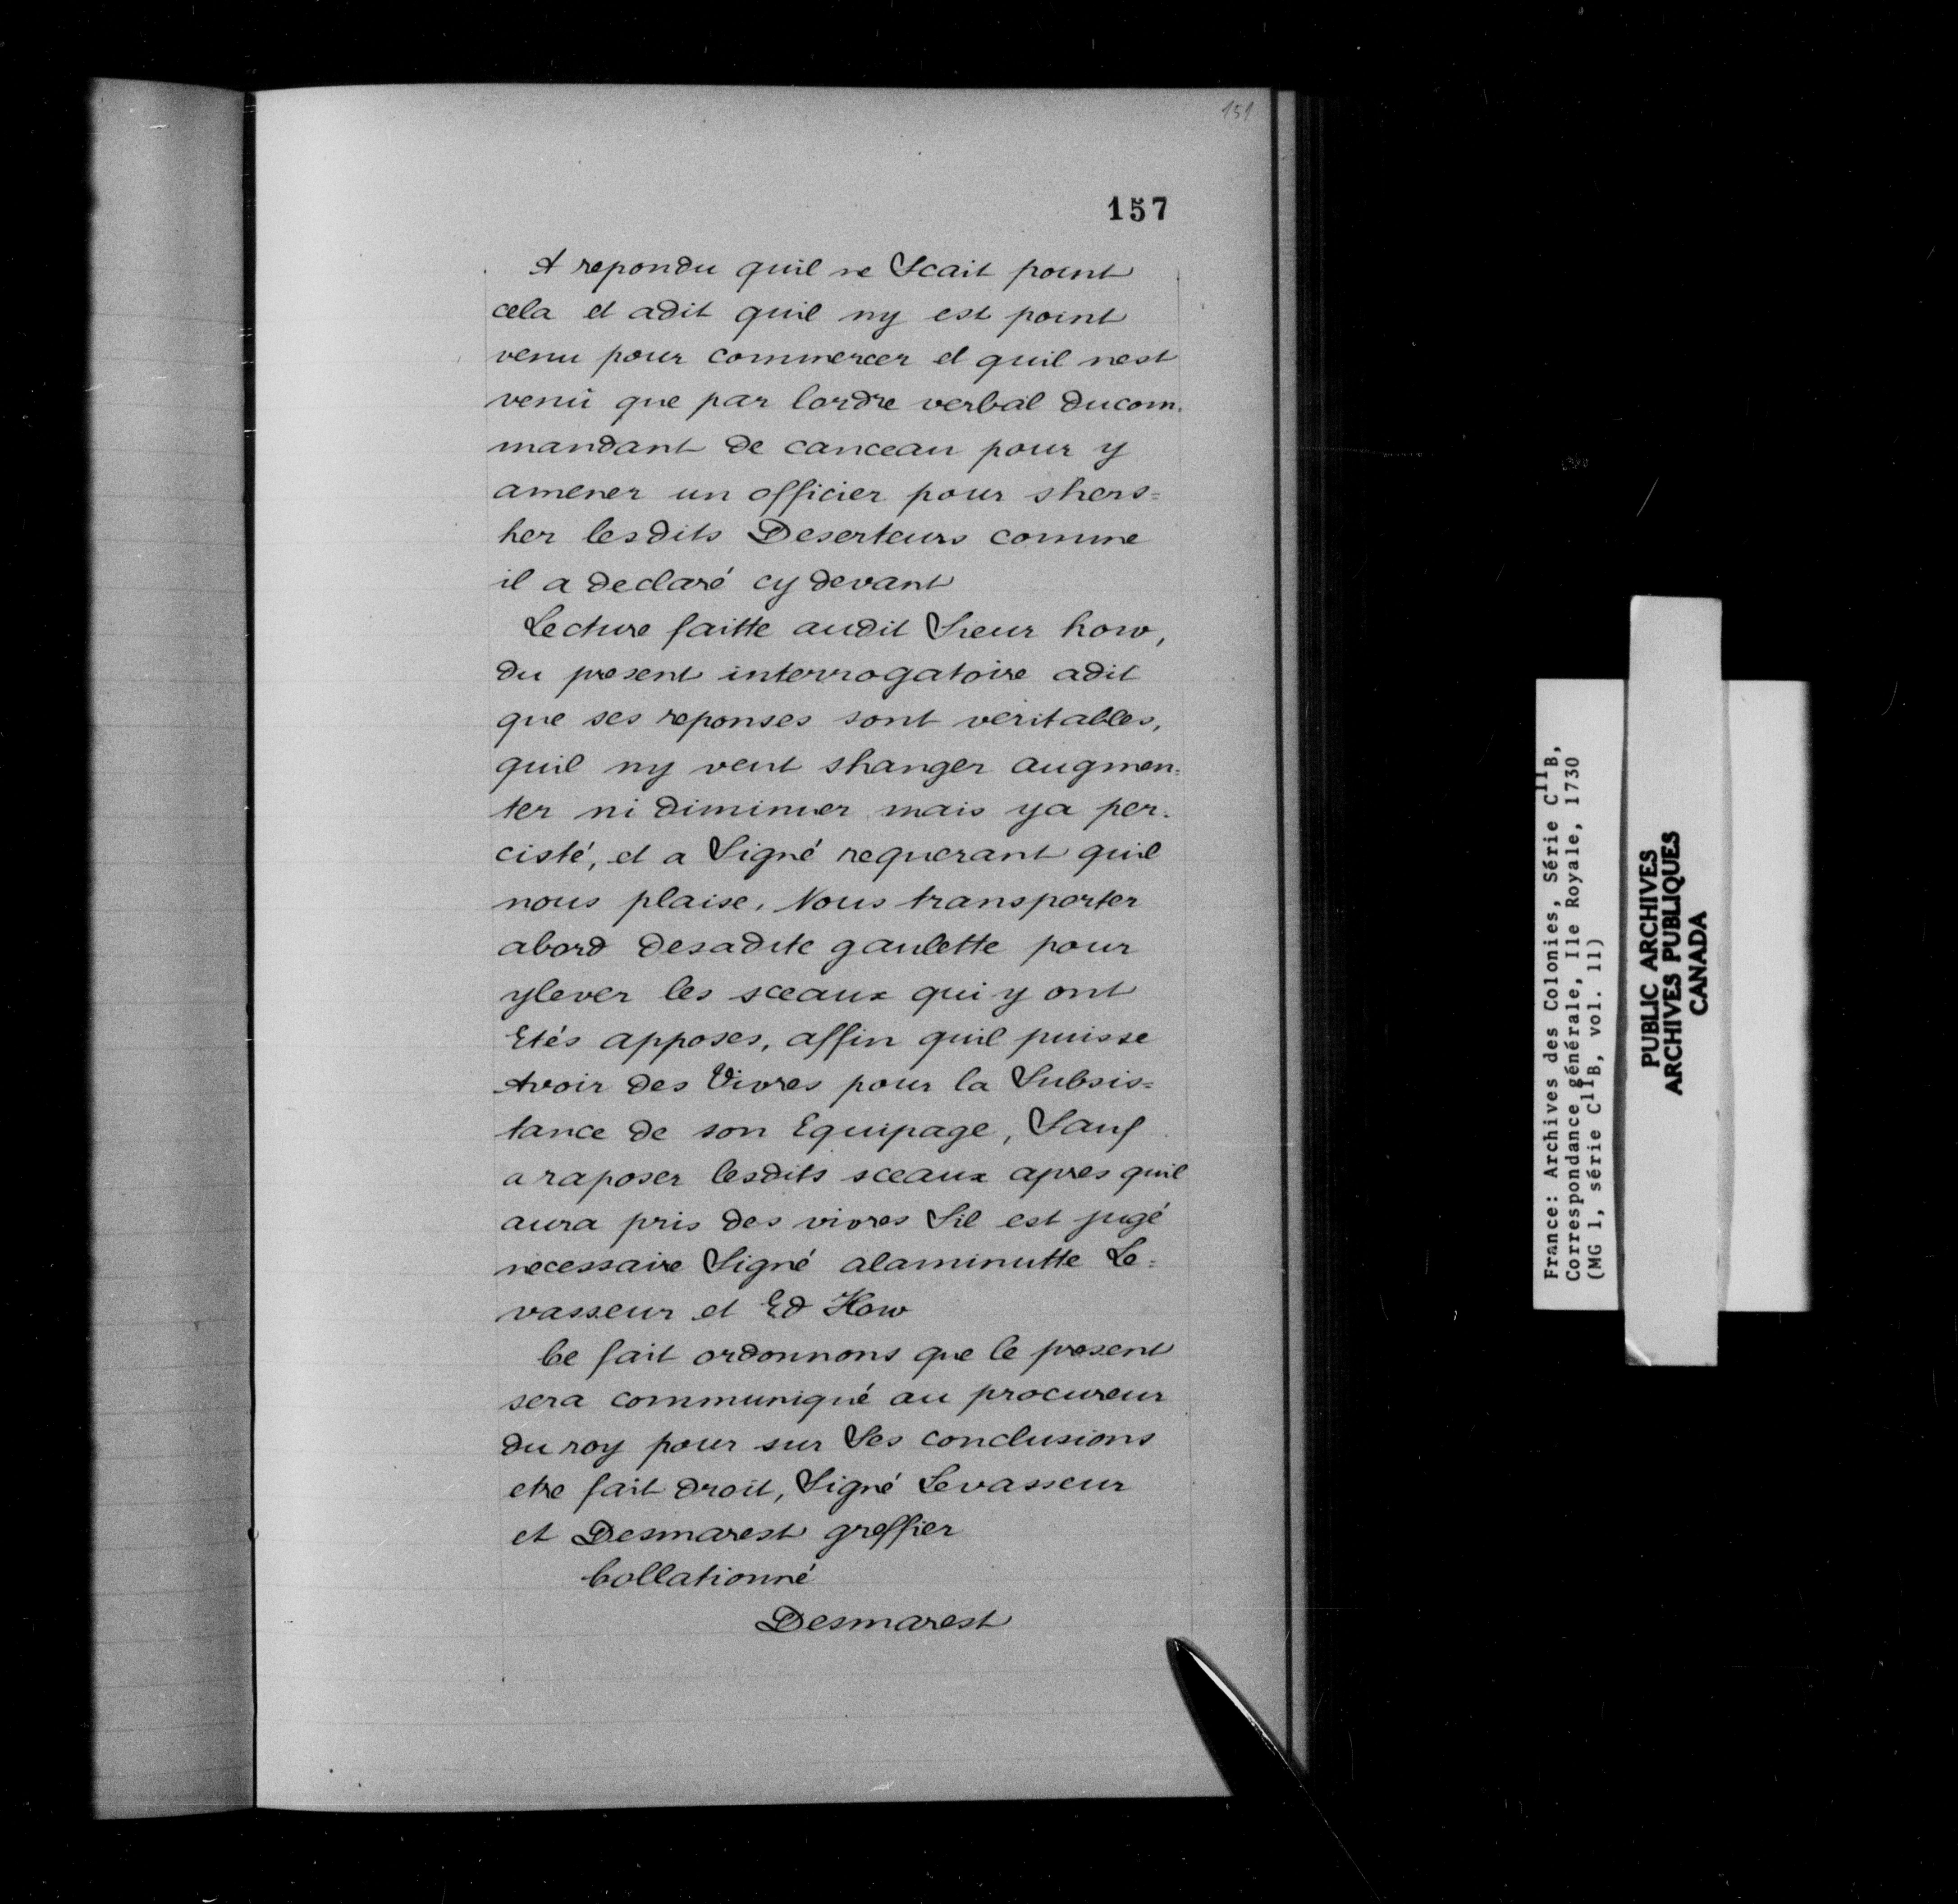 151
157
A repondu quil ne Scait point
cela et adit quil ny est point
venu pour commercer et quil nest
venû que par lordre verbal ducom-
mandant de canceau pour y
amener un officier pour shers=
her lesdits Deserteurs comme
il a declaré cy devant
Lecture faitte audit Sieur how,
du present interrogatoire adit
que ses reponses sont veritables,
quil ny veut shanger augmen=
ter ni diminuer mais ya per-
cisté, et a Signé requerant quil
nous plaise, Nous transporter
abord desadite gaulette pour
ylever les sceaux qui y ont
Etés apposes, affin quil puisse
Avoir des Vivres pour la Subsis=
tance de son Equipage, Sauf
a raposer lesdits sceaux apres quil
aura pris des vivres Sil est jugé
necessaire Signé alaminutte Le=
vasseur et Ed How
Ce fait ordonnons que le present
sera communiqué au procureur
du roy pour sur Ses conclusions
etre fait droit, Signé Levasseur
et Desmarest greffier
Collationné
Desmarest
France: Archives des Colonies, Série C11B,
Correspondance générale, Ile Royale, 1730
(MG 1, série C11B, vol. 11)
PUBLIC ARCHIVES
ARCHIVES PUBLIQUES
CANADA